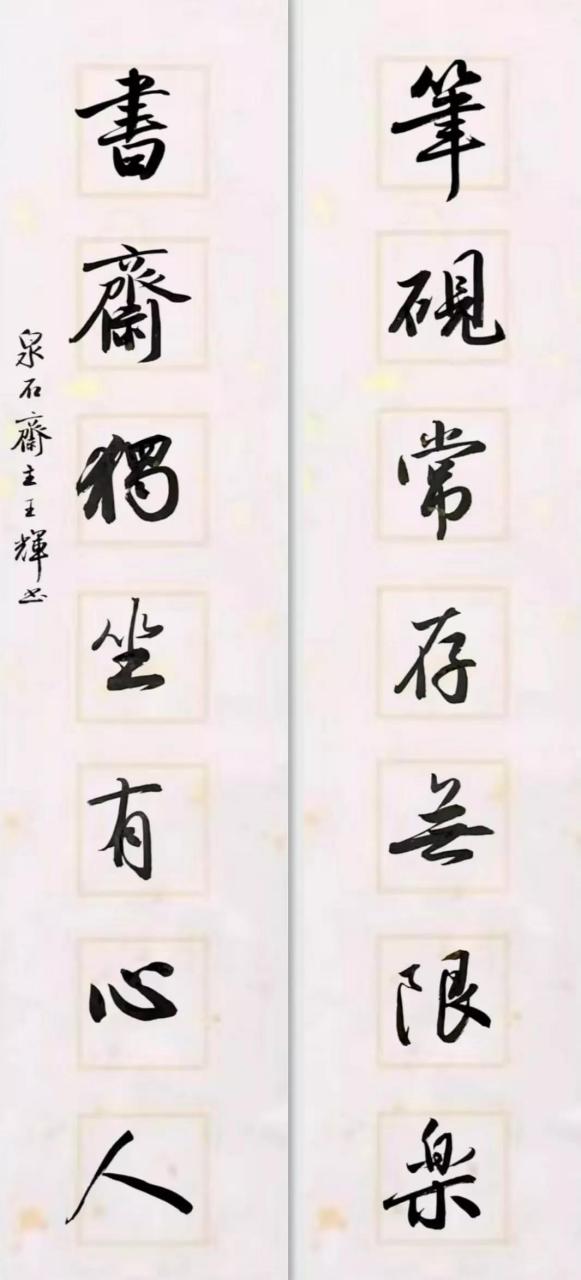 筆硯常存無限樂
書齋獨坐有心人
泉石齋主王輝书